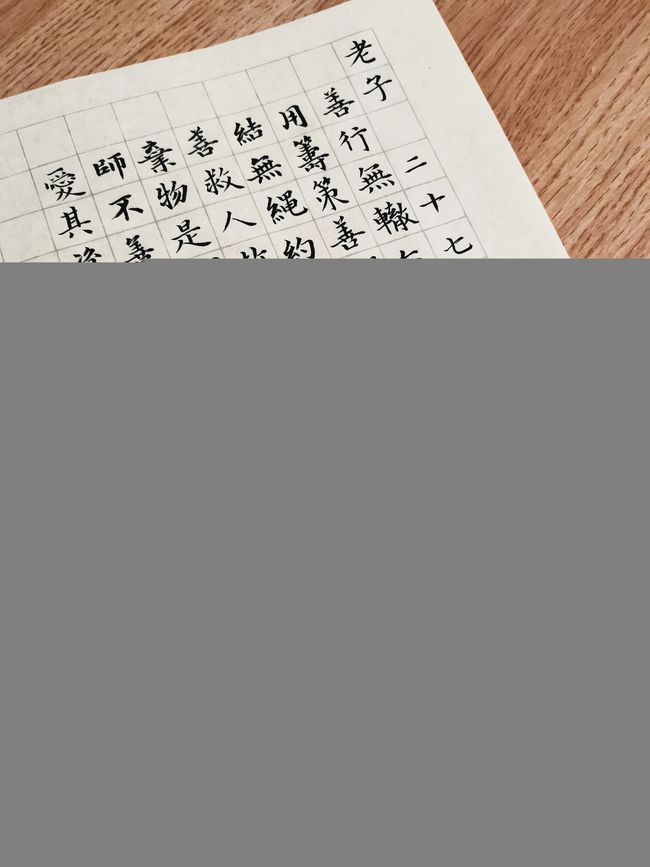 老子 二十七
善行無轍
用籌策善
結無繩約
善救人
棄物是
師不善
愛其